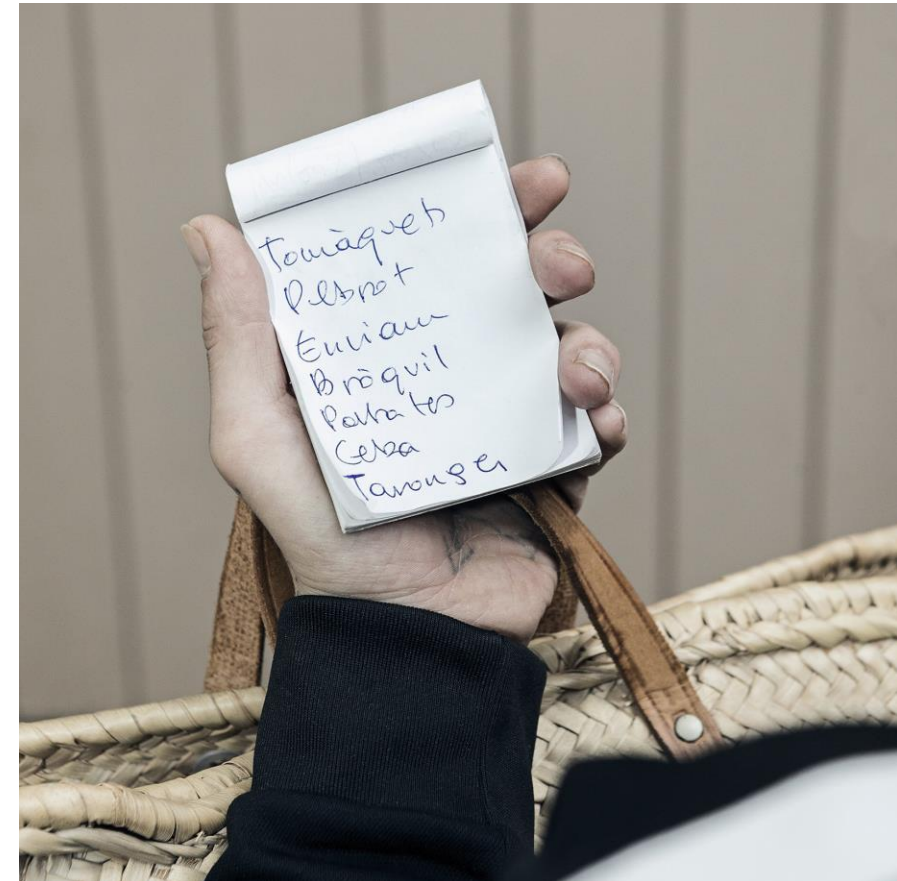 Tomàquets
Pebrot
Enciam
Bròquil
Patates
Ceba
Taronges